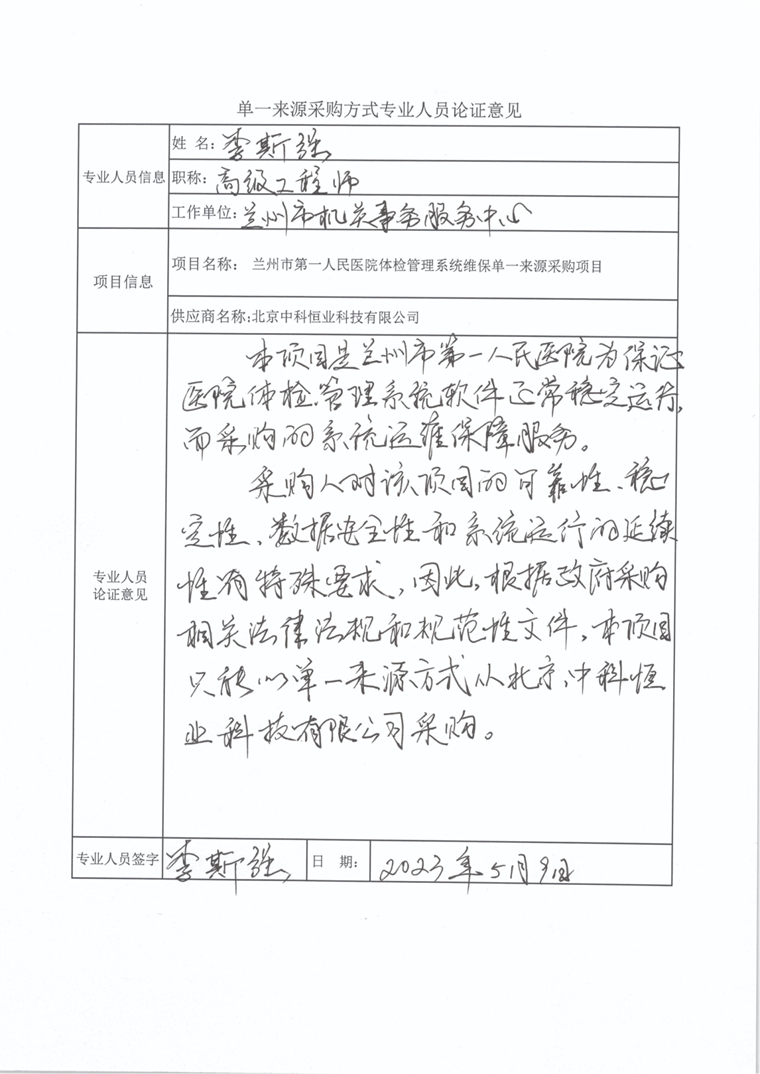 单一来源采购方式专业人员论证意见
专业人员信息
姓 名：李斯强
职称：高级工程师
工作单位：兰州市机关事务服务中心
项目信息
项目名称： 兰州市第一人民医院体检管理系统维保单一来源采购项目
供应商名称：北京中科恒业科技有限公司
专业人员
论证意见
本项目是兰州市第一人民医院为保证
医院体检管理系统软件正常稳定运行，
而采购的系统运维保障服务。
采购人对该项目的可靠性、稳
定性、数据安全性和系统运行的延续
性有特殊要求，因此，根据政府采购
相关法律法规和规范性文件，本项目
只能以单一来源方式从北京中科恒
业科技有限公司采购。
专业人员签字 李斯强 日 期： 2023年5月9日